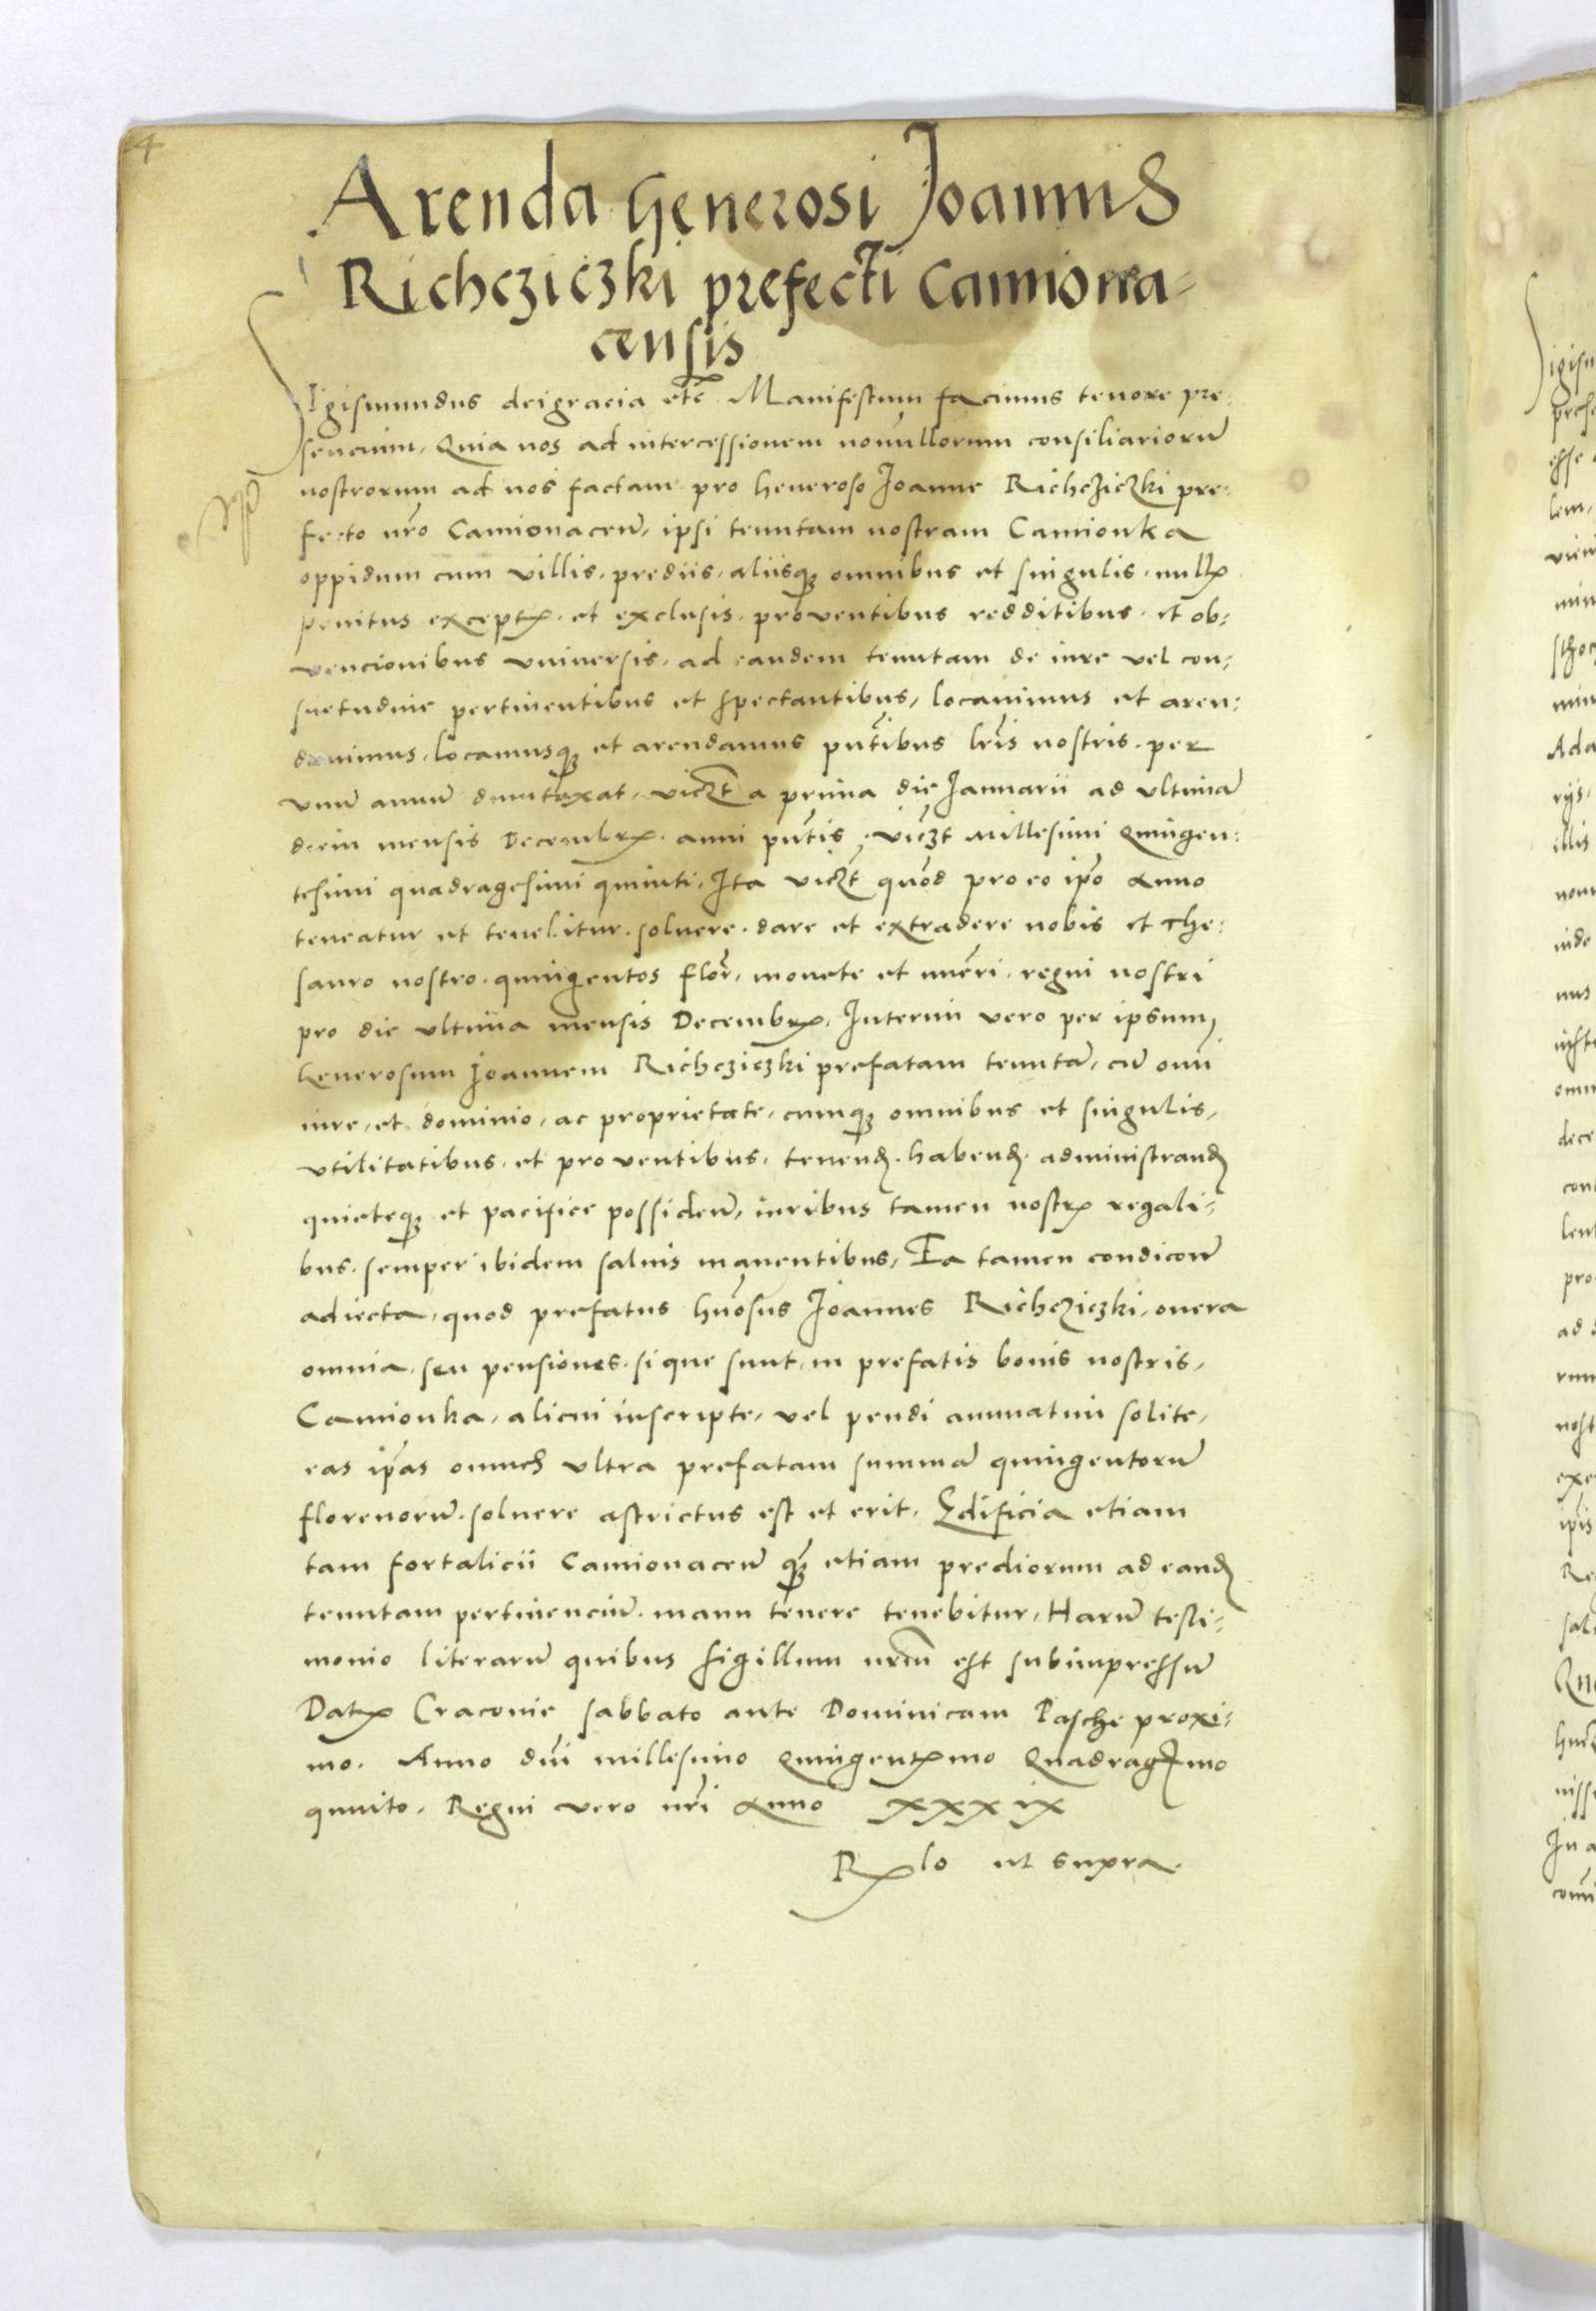 4
Arenda Generosi Joannis
Richcziczki prefecti Camiona-
censis
Sigismundus dei gracia etc̄ Manifestum facimus tenore pre:
sencium, Quia nos ad intercessionem nonnullorum consiliariorū
nostrorum ad nos factam pro Generoso Joanne Richcziczki pre:
fecto nr̄o Camionaceñ, ipsi tenutam nostram Camionka
oppidum cum villis, prediis, aliisq; omnibus et singulis, nullis
penitus exceptis et exclusis, proventibus redditibus et ob:
vencionibus universis, ad eandem tenutam de iure vel con:
suetudine pertinentibus et spectantibus, locavimus et aren:
davimus, locamusq; et arendamus pn̄tibus lr̄is nostris, per
unū annū duntaxat, viczt a prima die Januarii ad ultimā
diem mensis Decembris anni pn̄tis, viczt Millesimi Quingen:
tesimi quadragesimi quinti, Ita viczt quod pro eo ip̄o Anno
teneatur et tenebitur solvere, dare et extradere nobis et The:
sauro nostro quingentos flor̄, monete et nūeri, regni nostri
pro die ultima mensis Decembris, Interim vero per ipsum,
Generosum Joannem Richcziczki prefatam tenutā, cū omī
iure, et dominio, ac proprietate, cumq; omnibus et singulis,
utilitatibus et proventibus, tenend. habend. administrand
quieteq; et pacifice possideñ, iuribus tamen nostris regali:
bus semper ibidem salvis manentibus, Ea tamen condicoē
adiecta, quod prefatus Gn̄osus Joannes Richcziczki, onera
omnia, seu pensiones, si que sunt, in prefatis bonis nostris,
Camionka, alicui inscripte, vel pendi annuatim solite,
eas ip̄as omnes ultra prefatam summā quingentorū
florenorū solvere astrictus est et erit, Edificia etiam
tam fortalicii Camionaceñ q; etiam prediorum ad eand
tenutam pertinenciū manu tenere tenebitur, Harū testi:
monio literarū quibus sigillum nr̄m est subimpressū
Datis Cracovie sabbato ante Dominicam Pasche proxi:
mo. Anno dnī millesimo Quingentesimo Quadragesimo
quinto, Regni vero nr̄i Anno xxxix
Rlo ut supra.